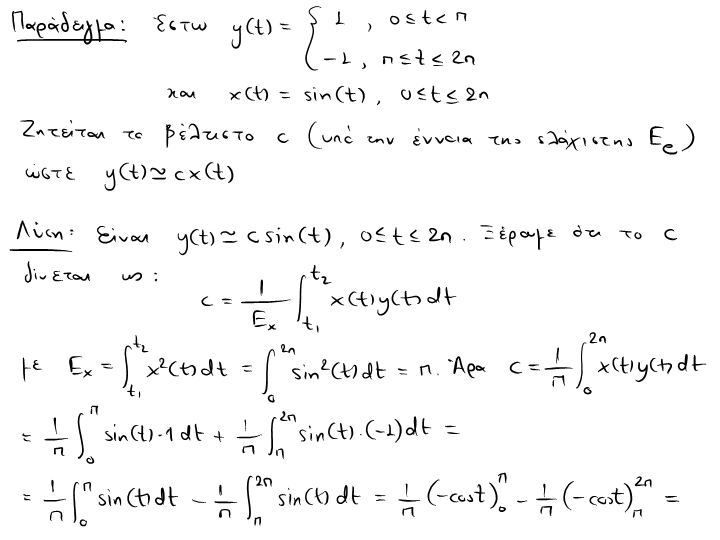 Παράδειγμα: Έστω y(t) = { 1 , 0≤t<π
-1 , π≤t≤2π
και x(t) = sin(t) , 0≤t≤2π
Ζητείται το βέλτιστο c (υπό την έννοια της ελάχιστης E_e)
ώστε y(t) ≃ c x(t)
Λύση: Είναι y(t) ≃ c sin(t) , 0≤t≤2π. Ξέραμε ότι το c
δίνεται ως:
c = 1/E_x ∫_{t_1}^{t_2} x(t) y(t) dt
με E_x = ∫_{t_1}^{t_2} x²(t) dt = ∫_0^{2π} sin²(t) dt = π. Άρα c = 1/π ∫_0^{2π} x(t) y(t) dt
= 1/π ∫_0^π sin(t)·1 dt + 1/π ∫_π^{2π} sin(t)·(-1) dt =
= 1/π ∫_0^π sin(t) dt - 1/π ∫_π^{2π} sin(t) dt = 1/π (-cost)_0^π - 1/π (-cost)_π^{2π} =